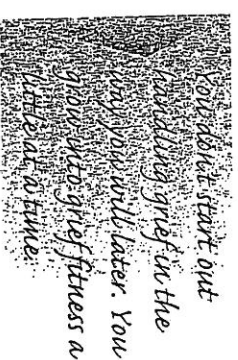 You don't start out
handling grief in the
way you will later. You
grow into grief fitness a
little at a time.